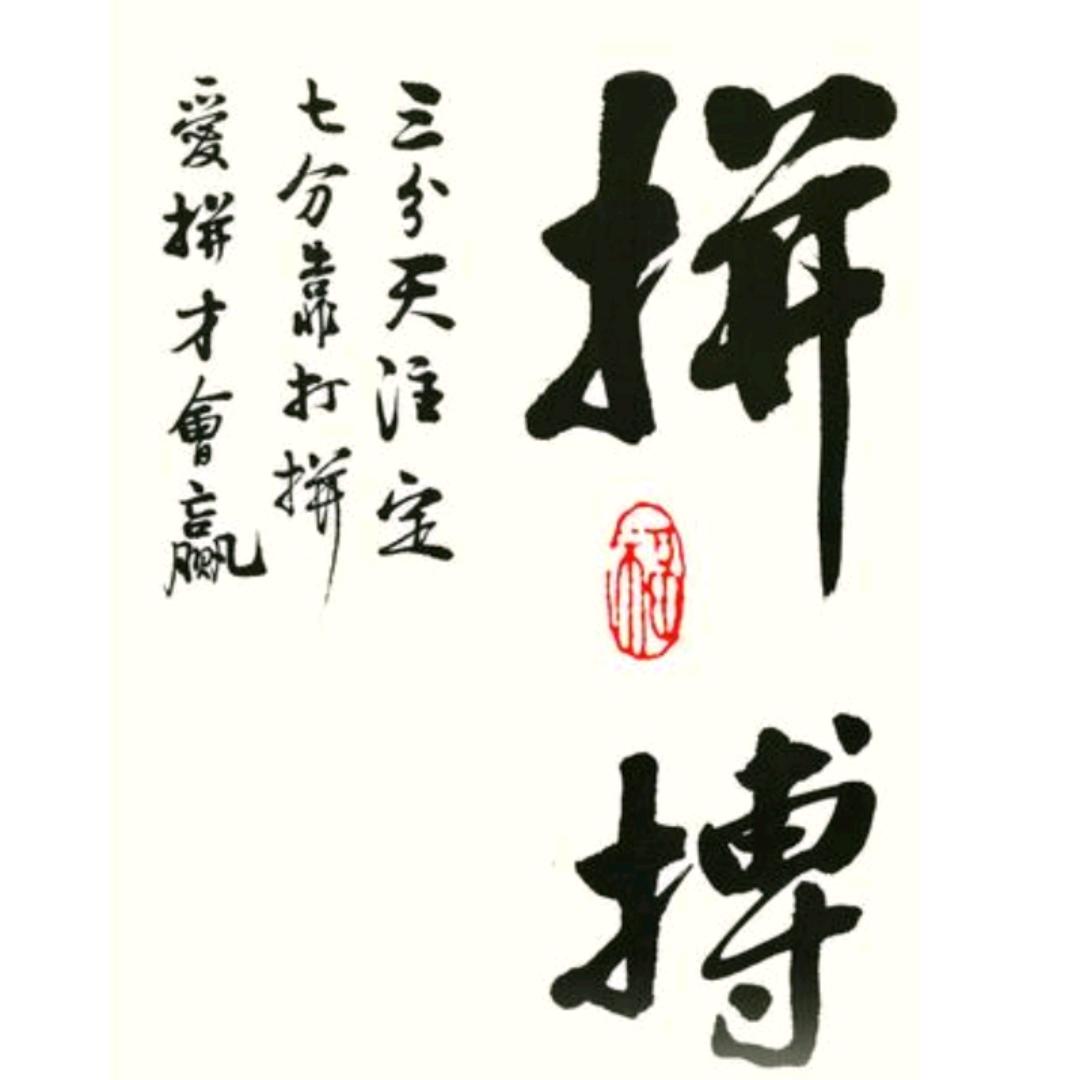 拼搏
三分天注定
七分靠打拼
愛拼才會贏
福